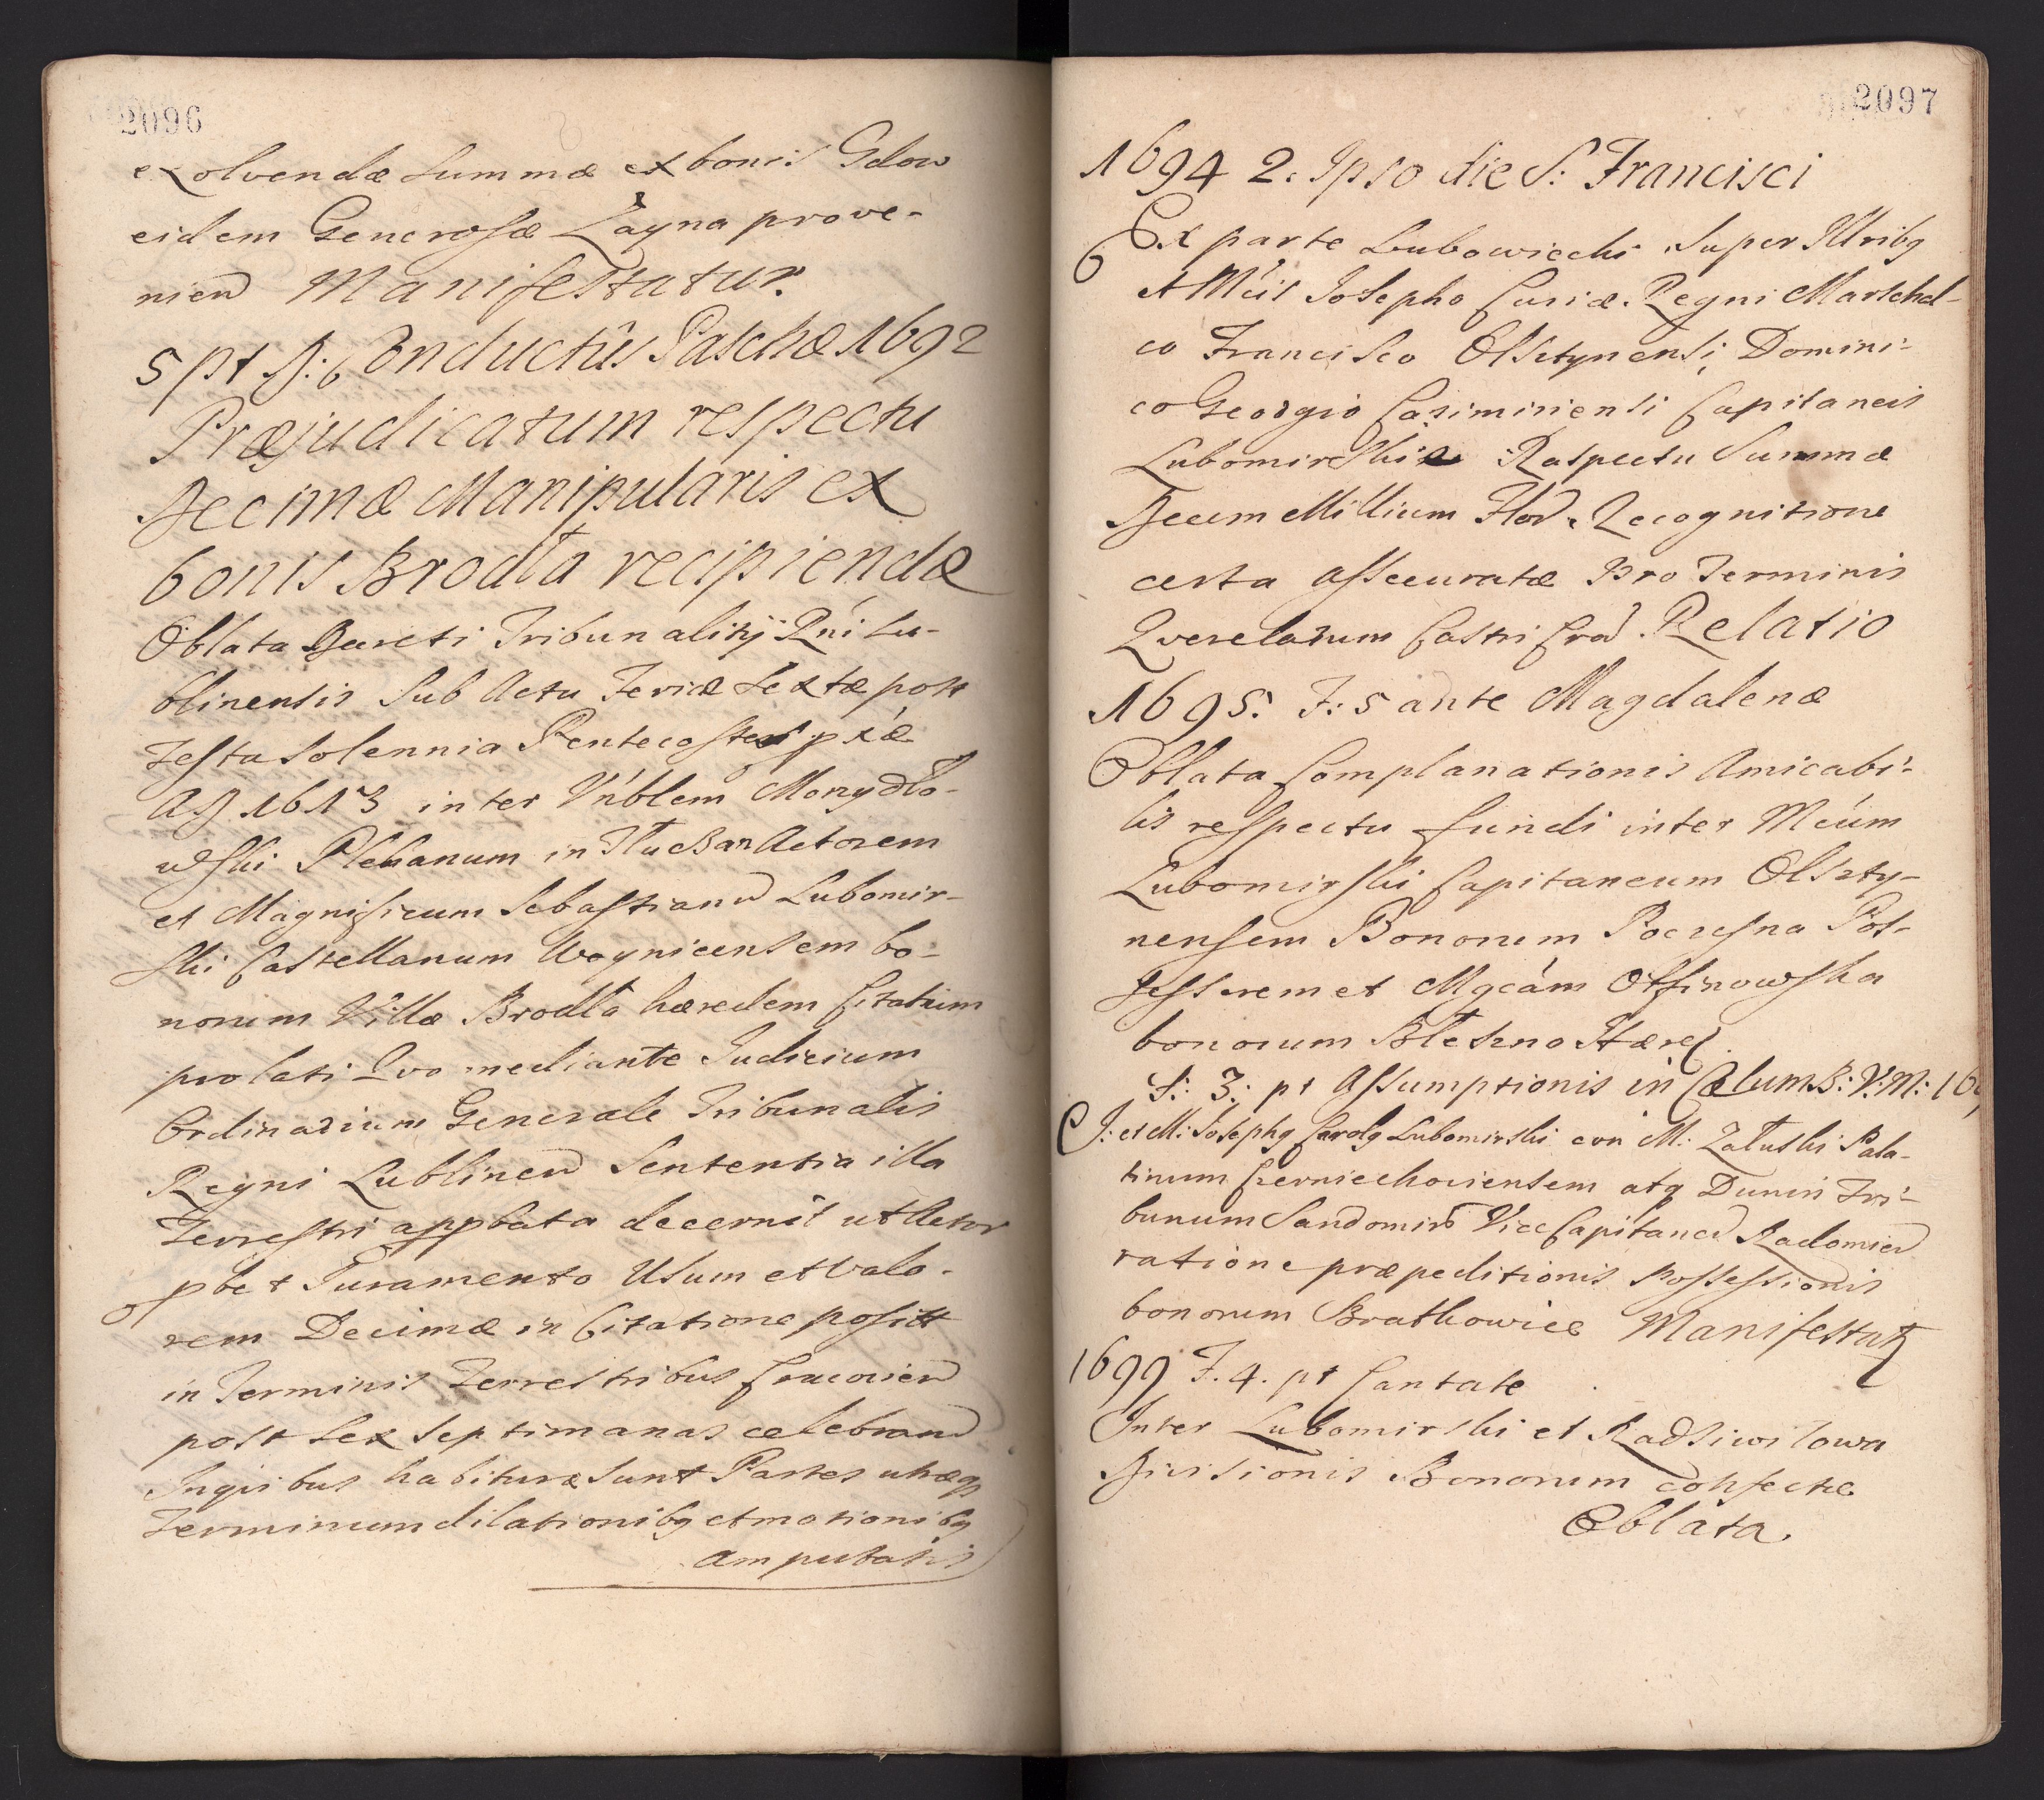 2096
exolvendæ Summæ ex bonis Gdow
eidem Generosæ Łayna prove-
nien Manifestatur.
5 pt D: Conductûs Paschæ 1692
Præjudicatum respectu
Decimæ Manipularis ex
bonis Brodła recipiendæ
Oblata Decreti Tribunalitÿ Rńi Lu-
blinensis Sub Actu Feriæ Sextæ post
Festa Solennia Pentecostes pxæ
AD 1613 inter Vńblem Monydło-
wski Plebanum in Actorem
et Magnificum Sebastianu Lubomir-
ski Castellanum Woynicensem bo-
norum Villæ Brodła hæredem Citatum
prolati Qvo mediante Judicium
Ordinarium Generale Tribunalis
Regni Lublinen Sententia illa
Terrestri appbata decernit ut Actor
pbet Juramento Usum et valo-
rem Decimæ in Citatione posit
in Terminis Terrestribus Cracovien
post Sex Septimanas celebrand
In qvibus habituræ Sunt Partes utræq
Terminum dilationibq et motionibq
amputatis
2097
1694 2. Ipso die S: Francisci
Ex parte Lubowiecki Super Illribq
et Mcis Josepho Curiæ Regni Marschal-
co Francisco Olsztynensi, Domini-
co Georgio Casimiriensi Capitaneis
Lubomirskie Raspectu Summæ
Decem Millium Flor. Recognitione
certa assecuratæ Pro Terminis
Qverelarum Castri Crac. Relatio
1695. F: 5 ante Magdalenæ
Oblata Complanationis Amicabi-
lis respectu fundi inter Mcúm
Lubomirski Capitaneum Olszty-
nensem Bonorum Poczesna Pos-
sessorem et Mgcám Otfinowska
bonorum Błeszno Hæred.
F: 3: pt Assumptionis in Cælum B: V: M: 169
J: et M: Josephq Carolq Lubomirski con M: Załuski Pala-
tinum Czerniechoviensem atq Dunin Tri-
bunum Sandomir Vice Capitaneu Radomien
ratione præpeditionis Possessionis
bonorum Bratkowice Manifestatr
1699 F. 4. pt Cantate
Inter Lubomirski et Radziwiłowa
Divisionis Bonorum confectæ
Oblata.